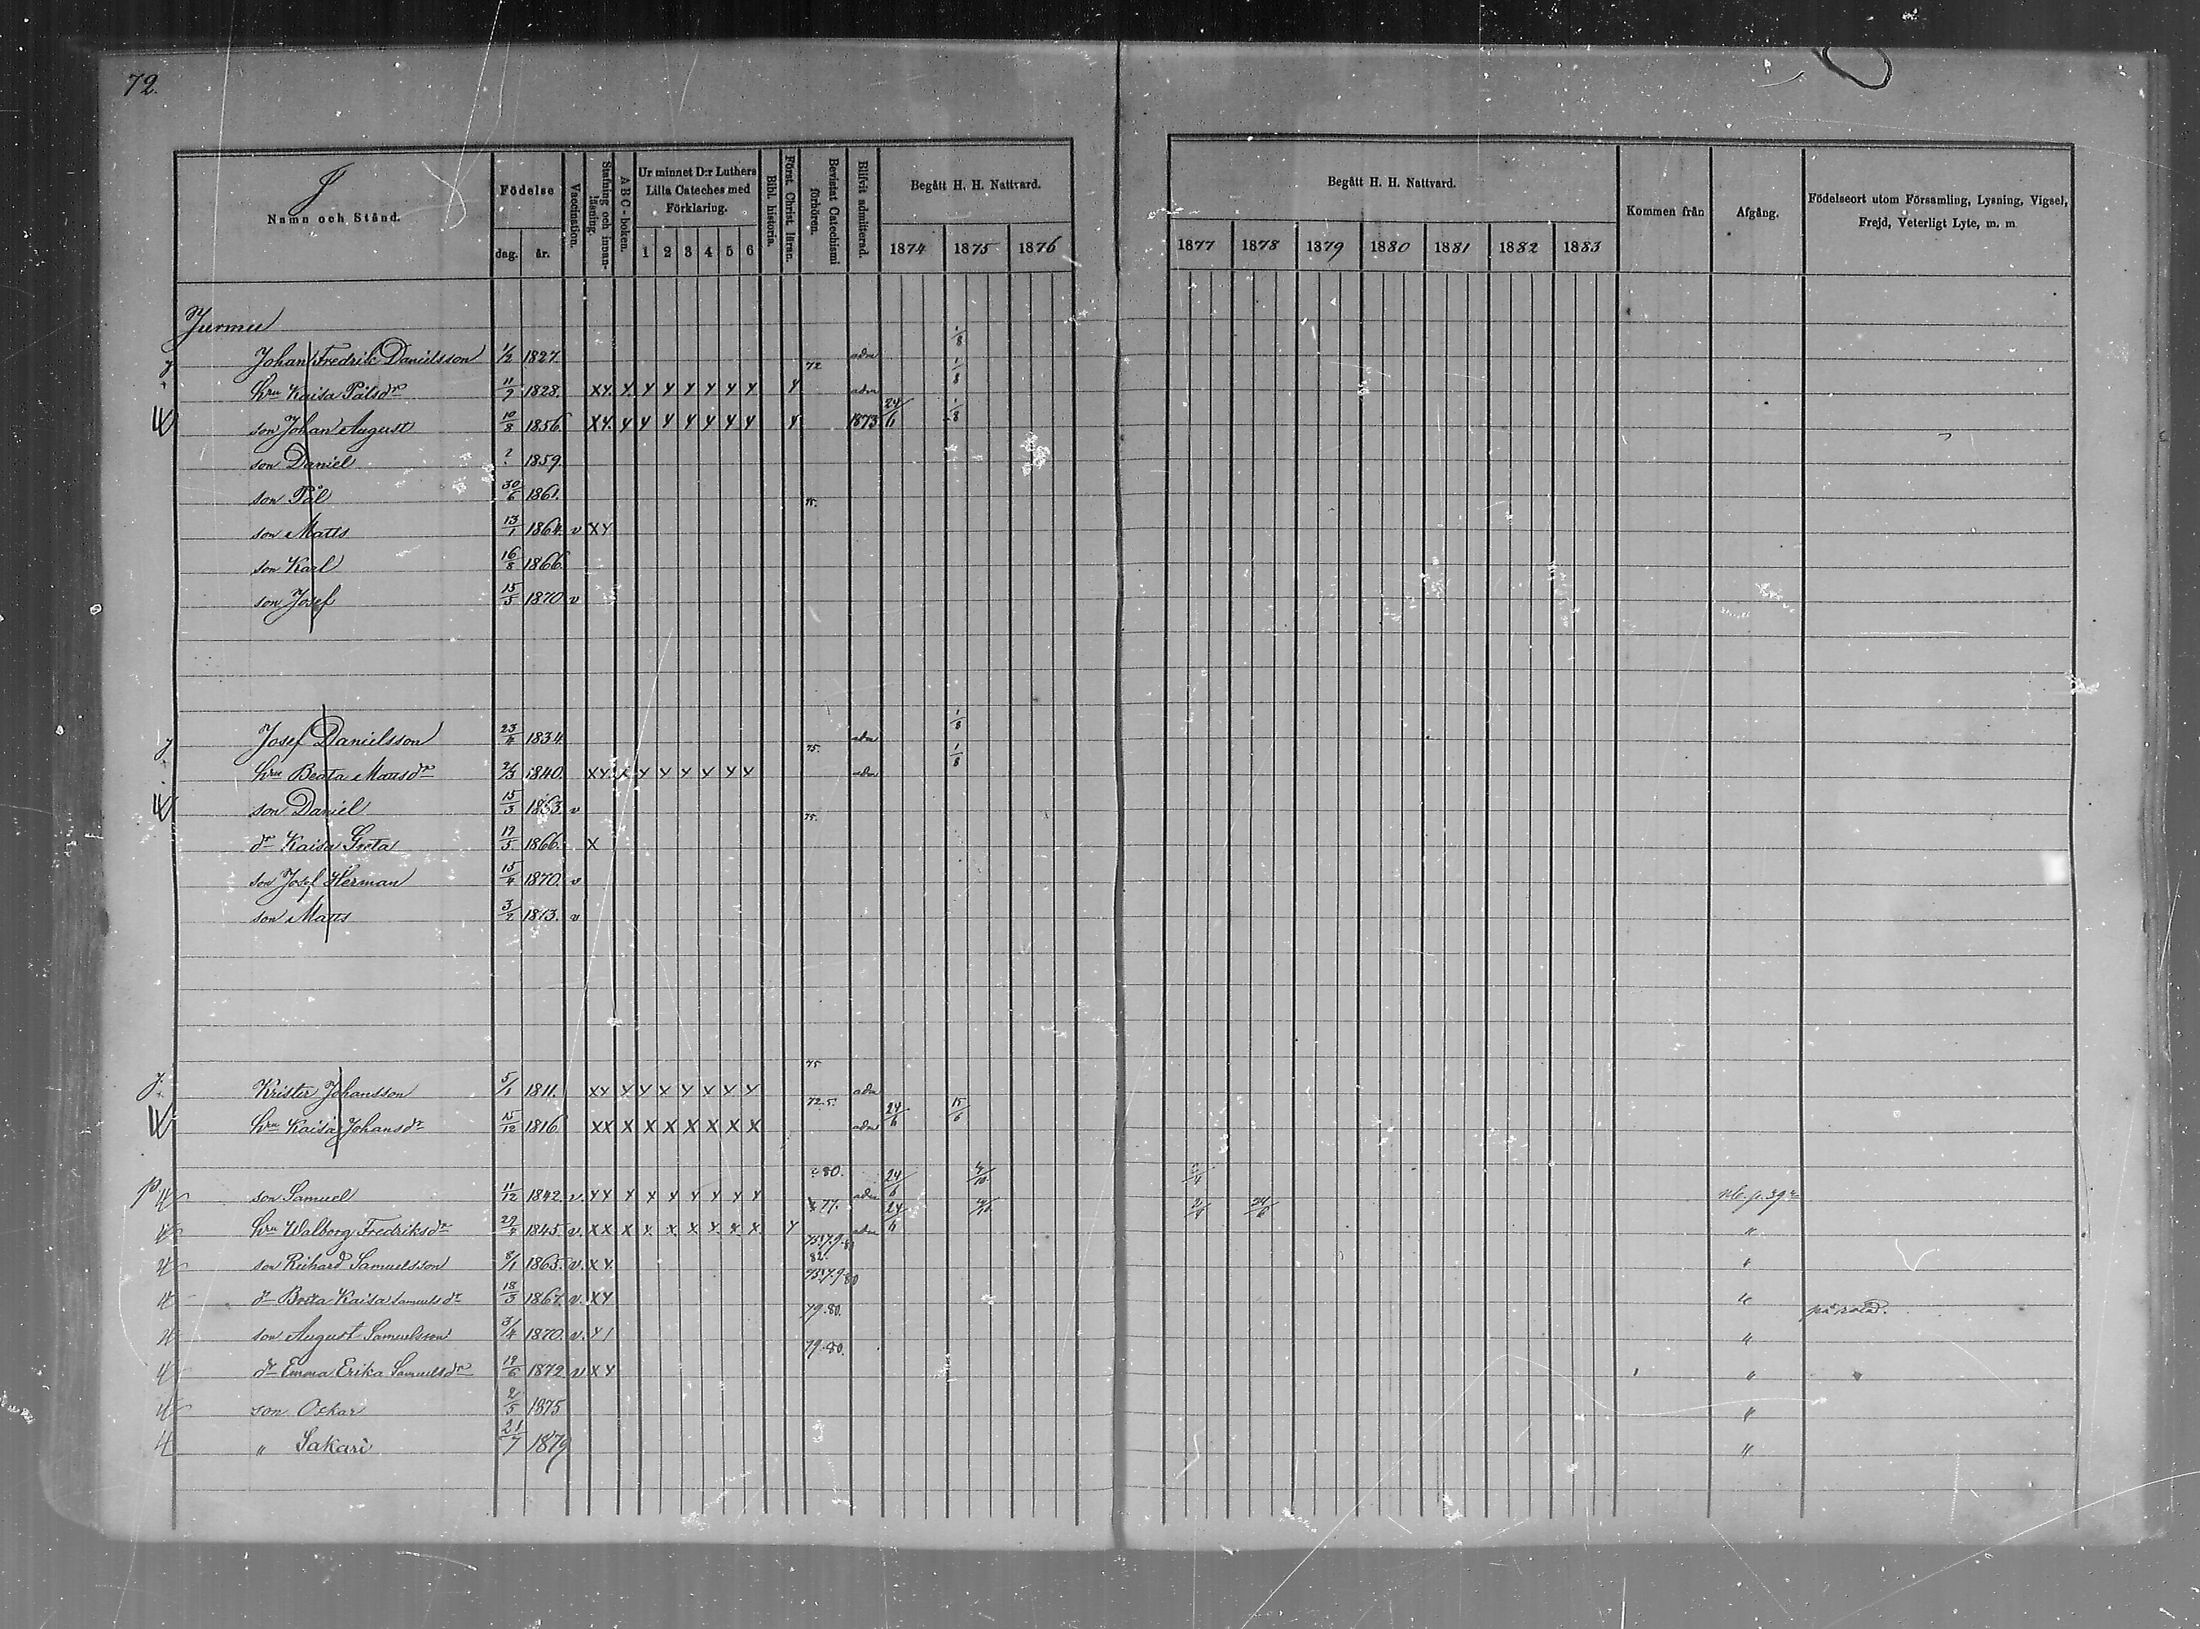 72.
J
Namn och Stånd.
Födelse
dag. år.
Vaccination.
Stafning och innanläsning.
A B C - boken.
Ur minnet D:r Luthers Lilla Cateches med Förklaring.
1 2 3 4 5 6
Bibl. historia.
Först. Christ. läran.
Bevistat Catechismi förhören.
Blifvit admitterad.
Begått H. H. Nattvard.
1874 1875 1876
Begått H. H. Nattvard.
1877 1878 1879 1880 1881 1882 1883
Kommen från
Afgång.
Födelseort utom Församling, Lysning, Vigsel, Frejd, Veterligt Lyte, m. m
Jurmu
Johan Fredrik Danielsson 1/2 1827. 72 adm 1/8
hru Kaisa Pålsdr 11/9 1828. XY. Y. Y Y Y Y Y Y Y adm 1/8
son Johan August 10/8 1856. XY. Y Y Y Y Y Y Y Y 1873 24/6 1/8
son Daniel ? 1859.
son Pål 30/6 1861.
son Matts 13/1 1864. v XY
son Karl 16/8 1866.
son Josef 15/5 1870 v
Josef Danielsson 23/4 1834. 75. adm 1/8
hru Beata Mattsdr 2/3 1840. XY. Y Y Y Y Y Y Y adm 1/8
son Daniel 15/3 1863. v 75.
dr Kaisa Greta 17/5 1866. X
son Josef Herman 15/4 1870. v
son Matts 3/2 1873. v
Krister Johansson 5/1 1811. XY Y Y X Y Y Y Y 75 adm
hru Kaisa Johansdr 15/12 1816 XX X X X X X X X 72.5. adm 24/6 15/6
son Samuel 11/12 1842. v. YY Y X X Y Y Y Y 80. adm 24/6
hru Walborg Fredriksdr 1845. v. XX X X. X X Y. X. X. Y 77. adm 24/6
son Richard Samuelsson 8/1 1865. v. XY. 82.
dr Brita Kaisa Samuelsdr 18/3 1867. v. XY
son August Samuelsson 3/4 1870. v. Y 79.80. på rote.
dr Emma Erika Samuelsdr 19/6 1872 v XY 79.80. "
son Oskar 2/5 1875 "
" Sakari 21/7 1879 "